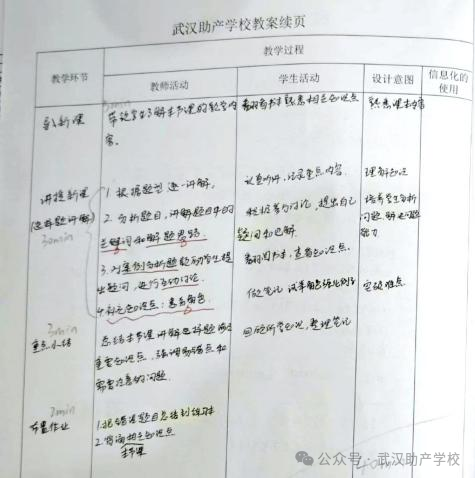 武汉助产学校教案续页
教学环节
教学过程
教师活动
学生活动
设计意图
信息化的
使用
导新课
5min
带领学生了解本节课的教学内
容。
翻阅书本熟悉相关知识点
熟悉课本内容
讲授新课
(选择题讲解)
30min
1. 根据题型逐一讲解,
2. 分析题目,讲解题目中的
关键词和解题思路
3. 对案例分析题鼓励学生提
出疑问,进行互动讨论。
4. 补充知识点:
认真听讲,记录重点内容.
积极参与讨论,提出自己
疑问和见解.
翻阅书本,查看知识点.
做笔记
理解知识
培养学生分析
问题 解决问题
能力
突破难点
3min
重点小结
总结本节课讲解选择题的
重要知识点,强调易错点和
需要注意的问题.
回顾所学知识,整理笔记
2min
布置作业
1. 把错误题目总结到练习本
2. 背诵相关知识点
公众号·武汉助产学校